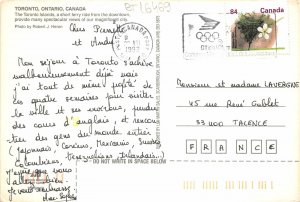 TORONTO, ONTARIO, CANADA
The Toronto Islands, a short ferry ride from the downtown,
provide many spectacular views of our magnificent city.
Photo by Robert J. Herron
Chers Pierrette
et André
Mon séjour à Toronto s'achève
malheureusement déjà mais
j'ai tout de même profité de
ces quatre semaines pour visiter
la ville et ses environs, prendre
des cours d'anglais et rencon-
trer des gens du monde entier
(Japonnais, Coréens, Mexicains, Suisses,
Colombiens, Vénézuéliens, Irlandais...)
j'espère que vous
allez bien
Je vous embrasse
DO NOT WRITE IN SPACE BELOW
CANADA
1992
84
CANADA
Monsieur et madame LAVERGNE
45 rue René Goblet
33400 TALENCE
FRANCE